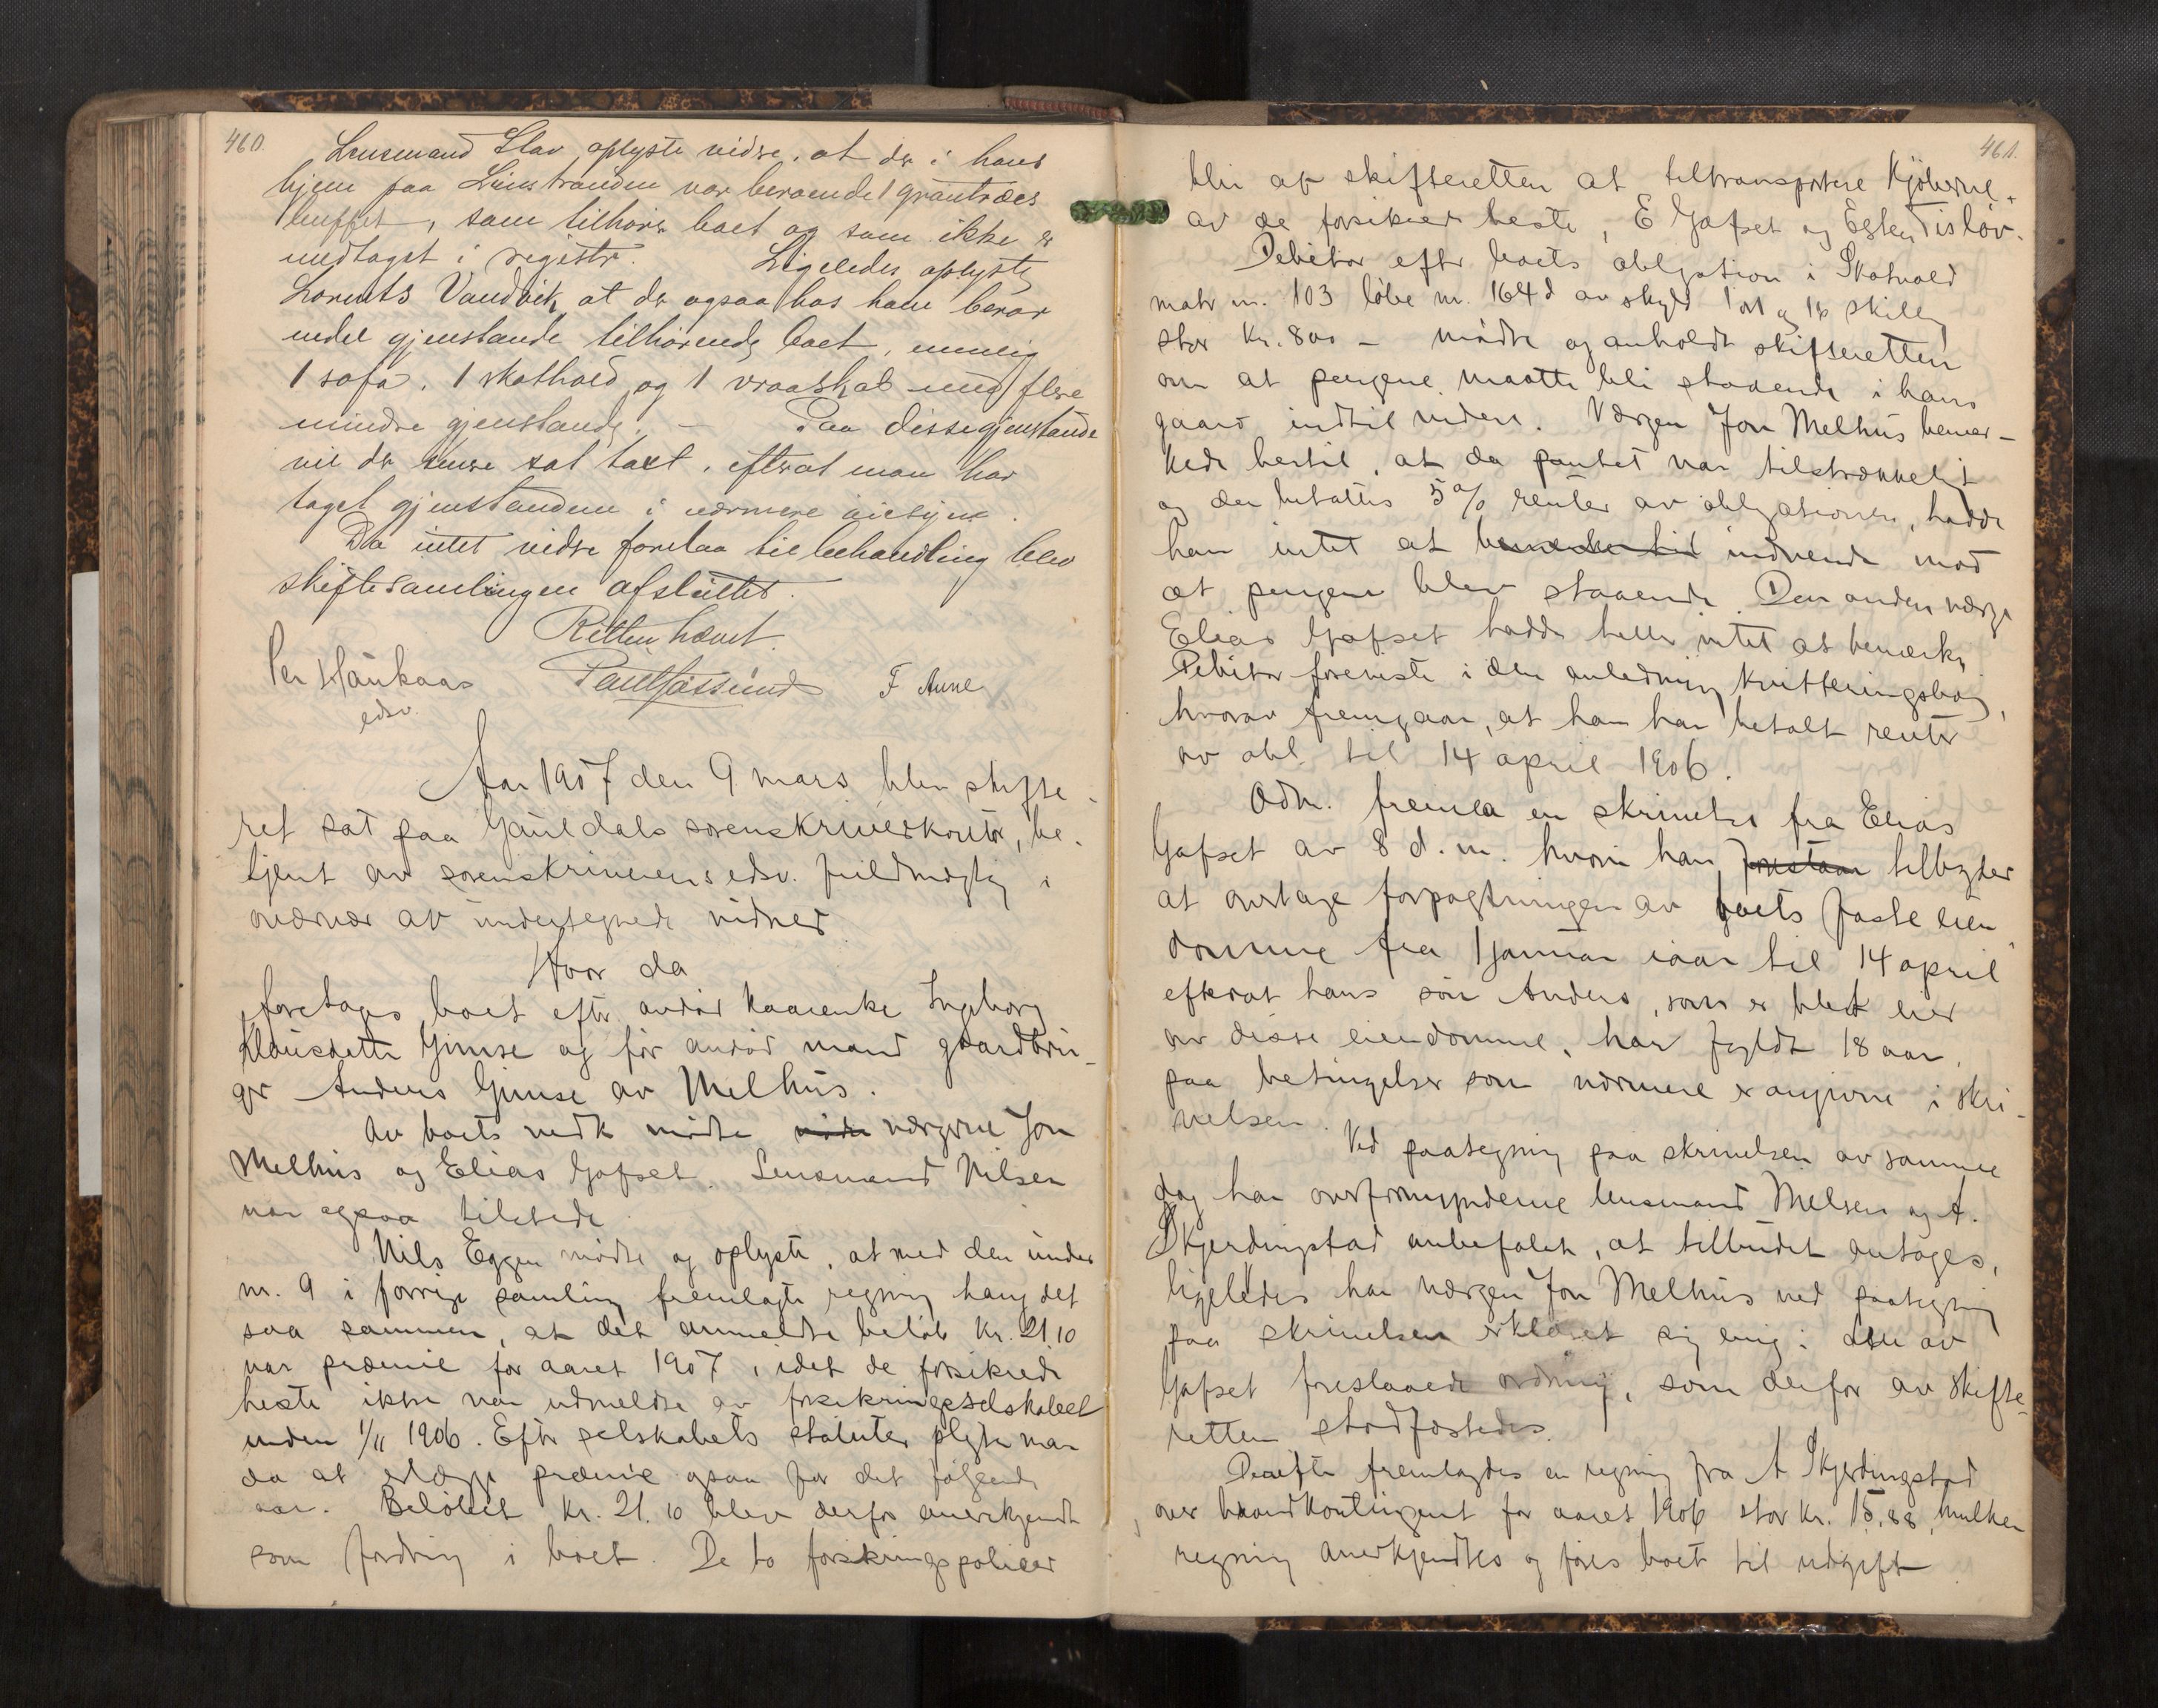 460.
Lensmand Slav oplyste vidre, at der i hans
hjem paa Leinstranden var beroende 1 grantræes
buffet, som tilhører boet og som ikke er
medtaget i registr. Ligeledes oplyste
Lorents Vandvik, at der ogsaa hos ham beror
endel gjenstande tilhørende boet, nemlig
1 sofa, 1 skathold og 1 vraaskab med flere
mindre gjenstande. — Paa disse gjenstande
vil der senere sat taxt, efterat man har
taget gjenstandene i nærmere øiesyn.
Da intet vidre forelaa til behandling blev
skiftesamlingen afsluttet.
Retten hævet.
Per Haukaas
edsv.
F Aune
Aar 1907 den 9 mars blev skifte-
ret sat paa Gauldals sorenskriverkontor, be-
tjent av sorenskriverens edsv. fuldmægtig i
overvær av undertegnede vidner
Hvor da
foretages boet efter avdød kaarenke Ingeborg
Klausdatter Gimse og før avdød mand gaardbru-
ger Anders Gimse av Melhus.
Av boets vedk mødte møtte værgerne Jon
Melhus og Elias Gafset. Lensmand Nilsen
var ogsaa tilstede.
Nils Eggen mødte og oplyste, at med den under
nr. 9 i forrige samling fremlagte regning hang det
saa sammen, at det anmeldte beløb kr. 21,10
var præmie for aaret 1907, idet de forsikrede
heste ikke var udmeldte av forsikringsselskabet
inden 1/11 1906. Efter selskabets statuter pligter man
da at erlægge præmie ogsaa for det følgende
aar. Beløbet kr. 21.10 blev derfor anerkjendt
som fordring i boet. De to forsikringspoliser
461.
blir av skifteretten at tiltransportere kjøberne
av de forsikrede heste, E Gafset og Esten Tisløv.
Debitor efter boets obligation i Skatvold
matr nr. 103 løbe nr. 164d av skyld 1 ort og 16 skilling
stor kr. 800 — mødte og anholdt skifteretten
om at pengene maatte bli staaende i hans
gaard indtil videre. Værgen Jon Melhus bemær-
kede hertil, at da pantet var tilstrækkelig
og der betaltes 5 % renter av obligationen, hadde
han intet at bemerke til indvende mod
at pengene blev staaende. Den anden værge
Elias Gafset hadde heller intet at bemærke
Debitor foreviste i den anledning kvitteringsbog,
hvorav fremgaar, at han har betalt renter
av obl. til 14 april 1906.
Adm. fremla en skrivelse fra Elias
Gafset av 8 d.m. hvori han tilbyder
at overtage forpagtningen av boets faste eien
domme fra 1 januar iaar til 14 april
efterat hans søn Anders, som er blet eier
av disse eiendomme, har fyldt 18 aar,
paa betingelser som nærmere er angivne i skri-
velsen. Ved paategning paa skrivelsen av samme
dag har overformynderne lensmand Nilsen og A.
Skjerdingstad anbefalet, at tilbudet antages,
ligeledes har værgen Jon Melhus ved paategning
paa skrivelsen erklæret sig enig i den av
Gafset foreslaaede ordning, som derfor av skifte-
retten stadfæstedes.
Derefter fremlagdes en regning fra A Skjerdingstad
over brandkontingent for aaret 1906 stor kr. 15,88, hvilken
regning anerkjendtes og føres boet til udgift